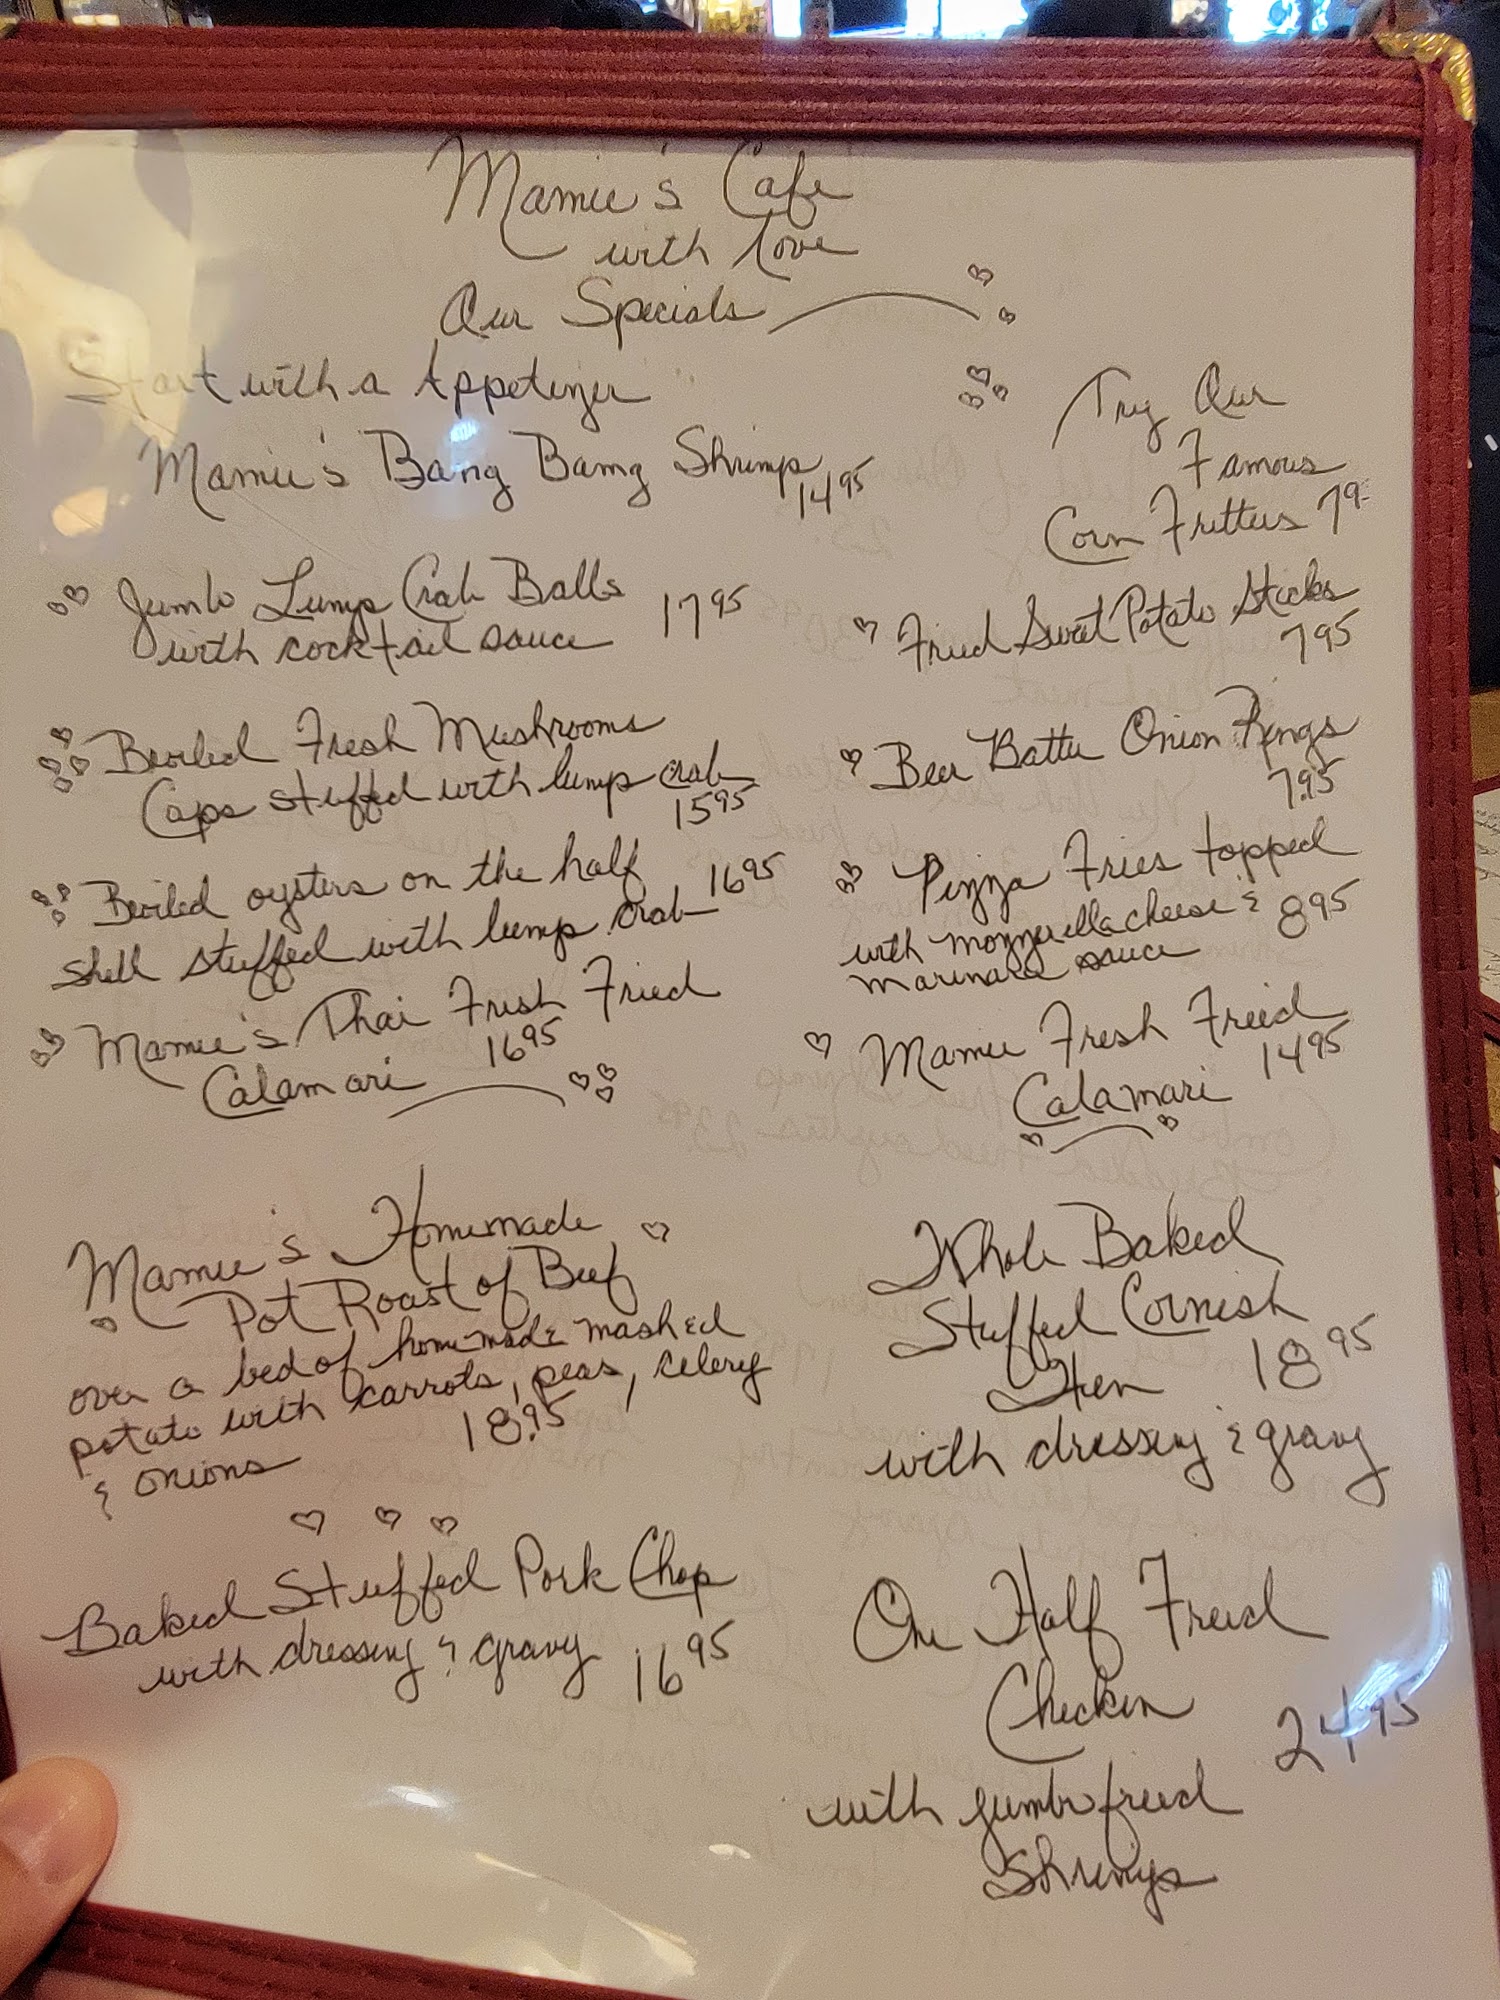 Mamie's Cafe
with love
Our Specials
Start with a Appetizer
Mamie's Bang Bang Shrimp
14 95
Jumbo Lump Crab Balls
with cocktail sauce 17 95
Broiled Fresh Mushrooms
Caps stuffed with lump crab
15 95
Broiled oysters on the half
shell stuffed with lump crab 16 95
Mamie's Thai Fresh Fried
Calamari 16 95
Try Our
Famous
Corn Fritters
Fried Sweet Potato Sticks
7 95
Beer Batter Onion Rings
7.95
Pizza Fries topped
with mozzerella cheese &
marinara sauce 8 95
Mamie Fresh Fried
Calamari 14 95
Mamie's Homemade
Pot Roast of Beef
over a bed of homemade mashed
potato with carrots, peas, celery
& onions 18.95
Whole Baked
Stuffed Cornish
Hen 18 95
with dressing & gravy
Baked Stuffed Pork Chop
with dressing & gravy 16 95
One Half Fried
Chicken
24 95
with jumbo fried
Shrimps